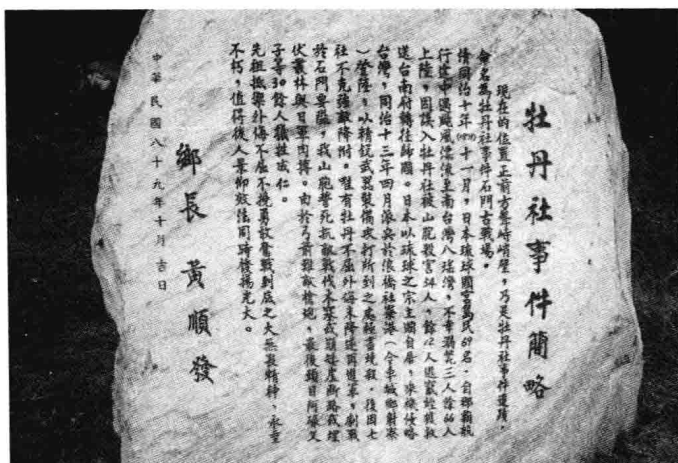 牡丹社事件簡略
現在的位置正前方葦峙峭壁，乃是牡丹社事件遺蹟，
命名為牡丹社事件石門古戰場。
情同治十年(1871)十一月，日本琉球國宮島民69名，自那霸航
行途中遇颱風漂流至南台灣八瑤灣，不幸溺死三人餘66人
上陸，因誤入牡丹社被山胞殺害54人，餘12人逃竄於獲救
送台南府轉往歸國。日本以琉球之宗主國自居，乘機侵略
台灣，同治十三年四月派兵於浪橋社寮港(今車城鄉射寮
)登陸，以精銳武器裝備攻打所到之處極盡燒殺，後因七
社不克強敵降附。惟有牡丹不屈外侮未降遂再進軍，劇戰
於石門要隘，我山胞誓死抗敵戰伐木寨或頭墩崖斷路或埋
伏叢林與日軍肉搏。由於弓箭難敵槍炮，最後頭目阿祿父
子等30餘人犧牲成仁。
先祖抵禦外侮不屈不撓勇敢奮戰到底之大無畏精神，永垂
不朽，值得後人景仰效法同時發揚光大。
鄉長 黃順發
中華民國八十九年十月 吉日